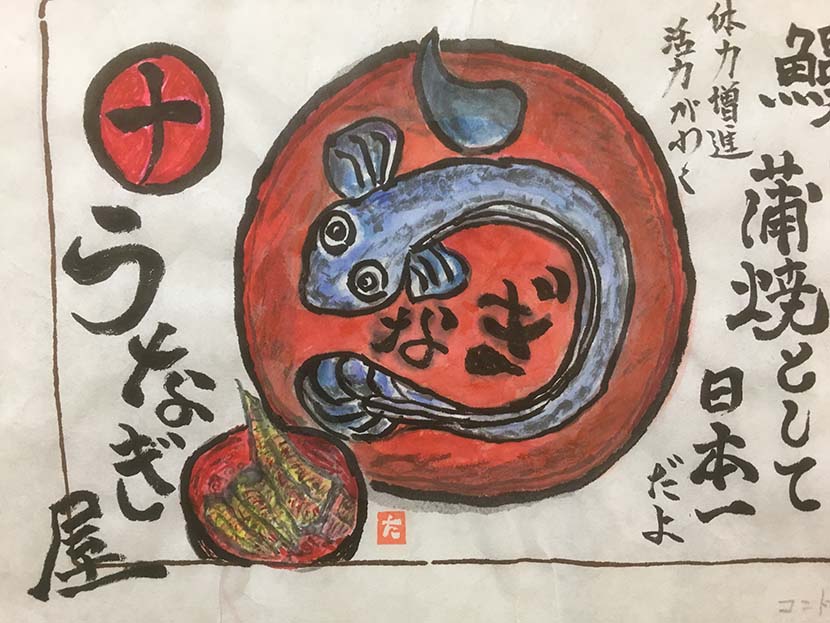 鰻 蒲焼として
日本一だよ
体力増進
活力がわく
なぎ
十
うなぎ屋
た